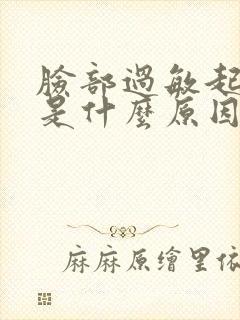 臉部過敏起
是什麼原因
麻麻原繪里依